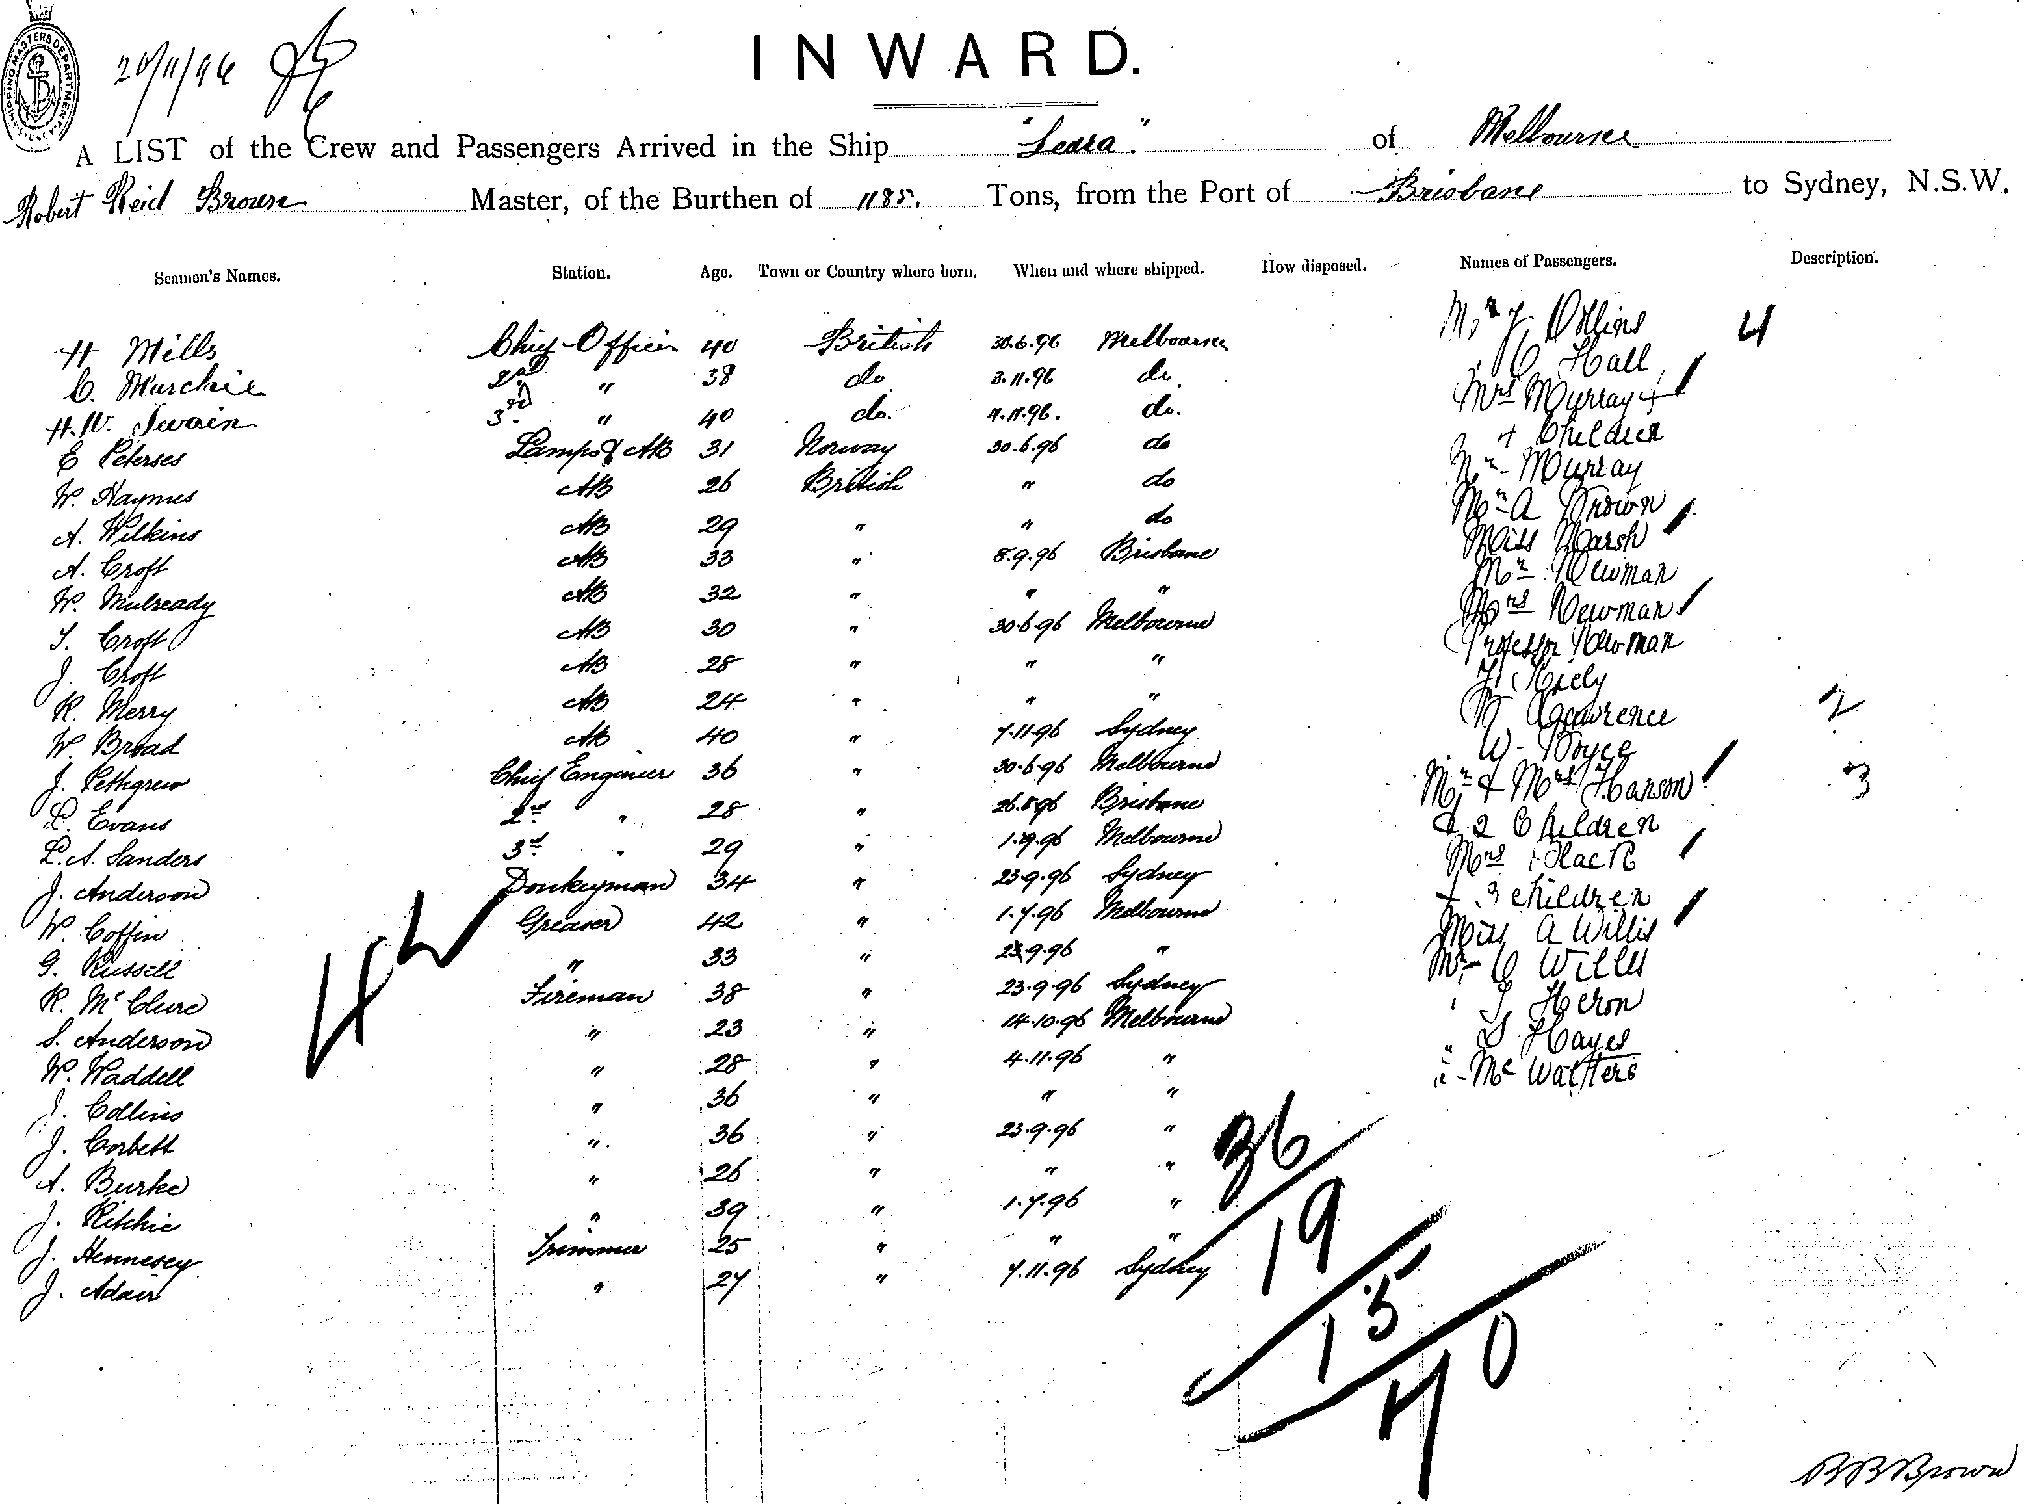 SHIPPING MASTERS DEPARTMENT
20/11/96
INWARD.
A LIST of the Crew and Passengers Arrived in the Ship "Leura" of Melbourne
Robert Reid Brown Master, of the Burthen of 1185. Tons, from the Port of Brisbane to Sydney, N.S.W.
Seamen's Names. Station. Age. Town or Country where born. When and where shipped. How disposed. Names of Passengers. Description.
H Mills Chief Officer 40 British 30.6.96 Melbourne Mr J. Collins 4
C. Murchie 2nd " 38 do 3.11.96 do. " C Hall
H.W. Swain 3rd " 40 do. 4.11.96. do. Mrs Murray +
E Peterses Lamps & AB 31 Norway 30.6.96 do 4 Children
W. Haymes AB 26 British " do Mr Murray
A. Wilkins AB 29 " " do Mr A Brown
A. Croft AB 33 " 8.9.96 Brisbane Miss Marsh
W. Mulready AB 32 " " " Mr Newman
T. Croft AB 30 " 30.6.96 Melbourne Mrs Newman
J. Croft AB 28 " " " Professor Newman
R. Merry AB 24 " " " Kiely
W. Broad AB 40 " 7.11.96 Sydney Lawrence 2
J. Pettigrew Chief Engineer 36 " 30.6.96 Melbourne W. Boyce
L. Evans 2nd " 28 " 26.8.96 Brisbane Mr & Mrs Hanson 3
L. A. Sanders 3rd " 29 " 1.9.96 Melbourne & 2 Children
J. Anderson Donkeyman 34 " 23.9.96 Sydney Mrs Black
W. Coffin Greaser 42 " 1.7.96 Melbourne + 3 children
G. Russell " 33 " 23.9.96 " Miss A Willis
R. McClure Fireman 38 " 23.9.96 Sydney Mr C Willis
S. Anderson " 23 " 14.10.96 Melbourne " J Heron
W. Waddell " 28 " 4.11.96 " " S Hayes
J. Collins " 36 " " " " Mc Walters
J. Corbett " 36 " 23.9.96 "
A. Burke " 26 " " "
J. Ritchie " 39 " 1.7.96 "
J. Hennesey Trimmer 25 " " "
J. Adair " 27 " 7.11.96 Sydney
42
36
19
15
70
R R Brown